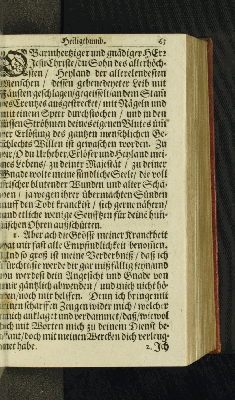 Heiligthumb. 63
O Barmhertziger und gnädiger HErr
JEsu Christe / du Sohn des allerhöch-
sten / Heyland der allerelendesten
Menschen / dessen gebenedeyter Leib mit
Fäusten geschlagen / gegeisselt / an dem Stam
des Creutzes ausgestrecket / mit Nägeln und
mit einem Speer durchstochen / und in den
süssen Ströhmen deines eigenen Blutes umb
der Erlösung des gantzen menschlichen Ge-
schlechts Willen ist gewaschen worden. Zu
dir / O du Urheber, Erlöser und Heyland mei-
nes Lebens / zu deiner Majestät / zu deiner
Gnade wolte meine sündliche Seele / die voll
frischer blutender Wunden und alter Schä-
den / ja wegen ihrer übermachten Sünden
auff den Todt kranck ist / sich gern nähern /
und etliche wenige Seufftzen für deine him-
lischen Ohren ausschütten.
1. Aber ach die Grösse meiner Kranckheit
hat mir fast alle Empfindlichkeit benommen.
Und so groß ist meine Verderbniß / daß ich
fürchte sie werde dir gar mißfällig seyn und
du werdest dein Angesicht und Gnade von
mir gäntzlich abwenden / und mich nicht hö-
ren / noch mir helffen. Denn ich bringe mit
einen scharffen Zeugen wider mich / welcher
mich anklaget und verdammet / daß / wiewol
ich mit Worten mich zu deinem Dienst be-
kant / doch mit meinen Wercken dich verleug-
net habe. 2. Ich